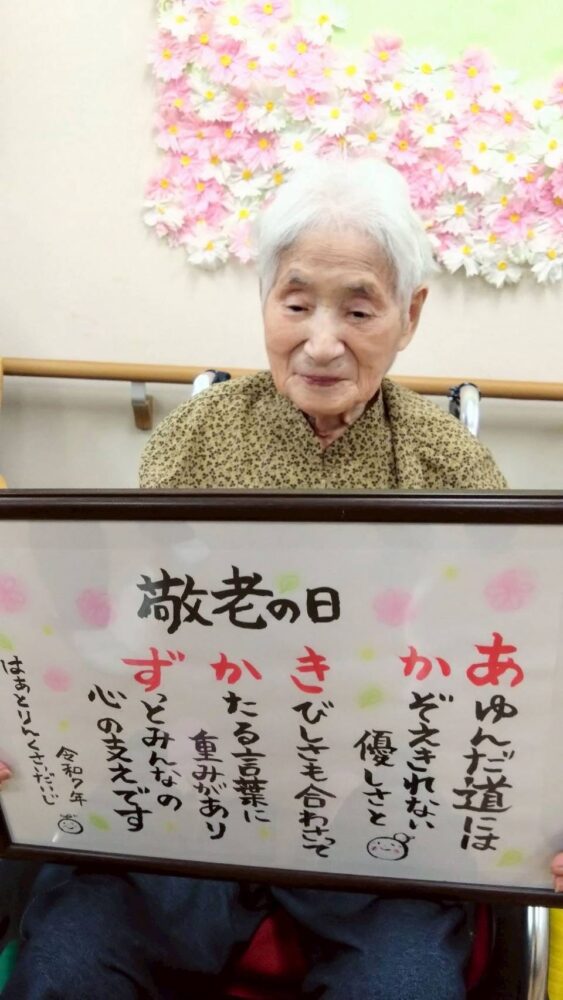 敬老の日
あゆんだ道には
かぞえきれない
優しさと
きびしさも合わさって
かたる言葉に
重みがあり
ずっとみんなの
心の支えです
令和7年
はあとりんくさいだいじ